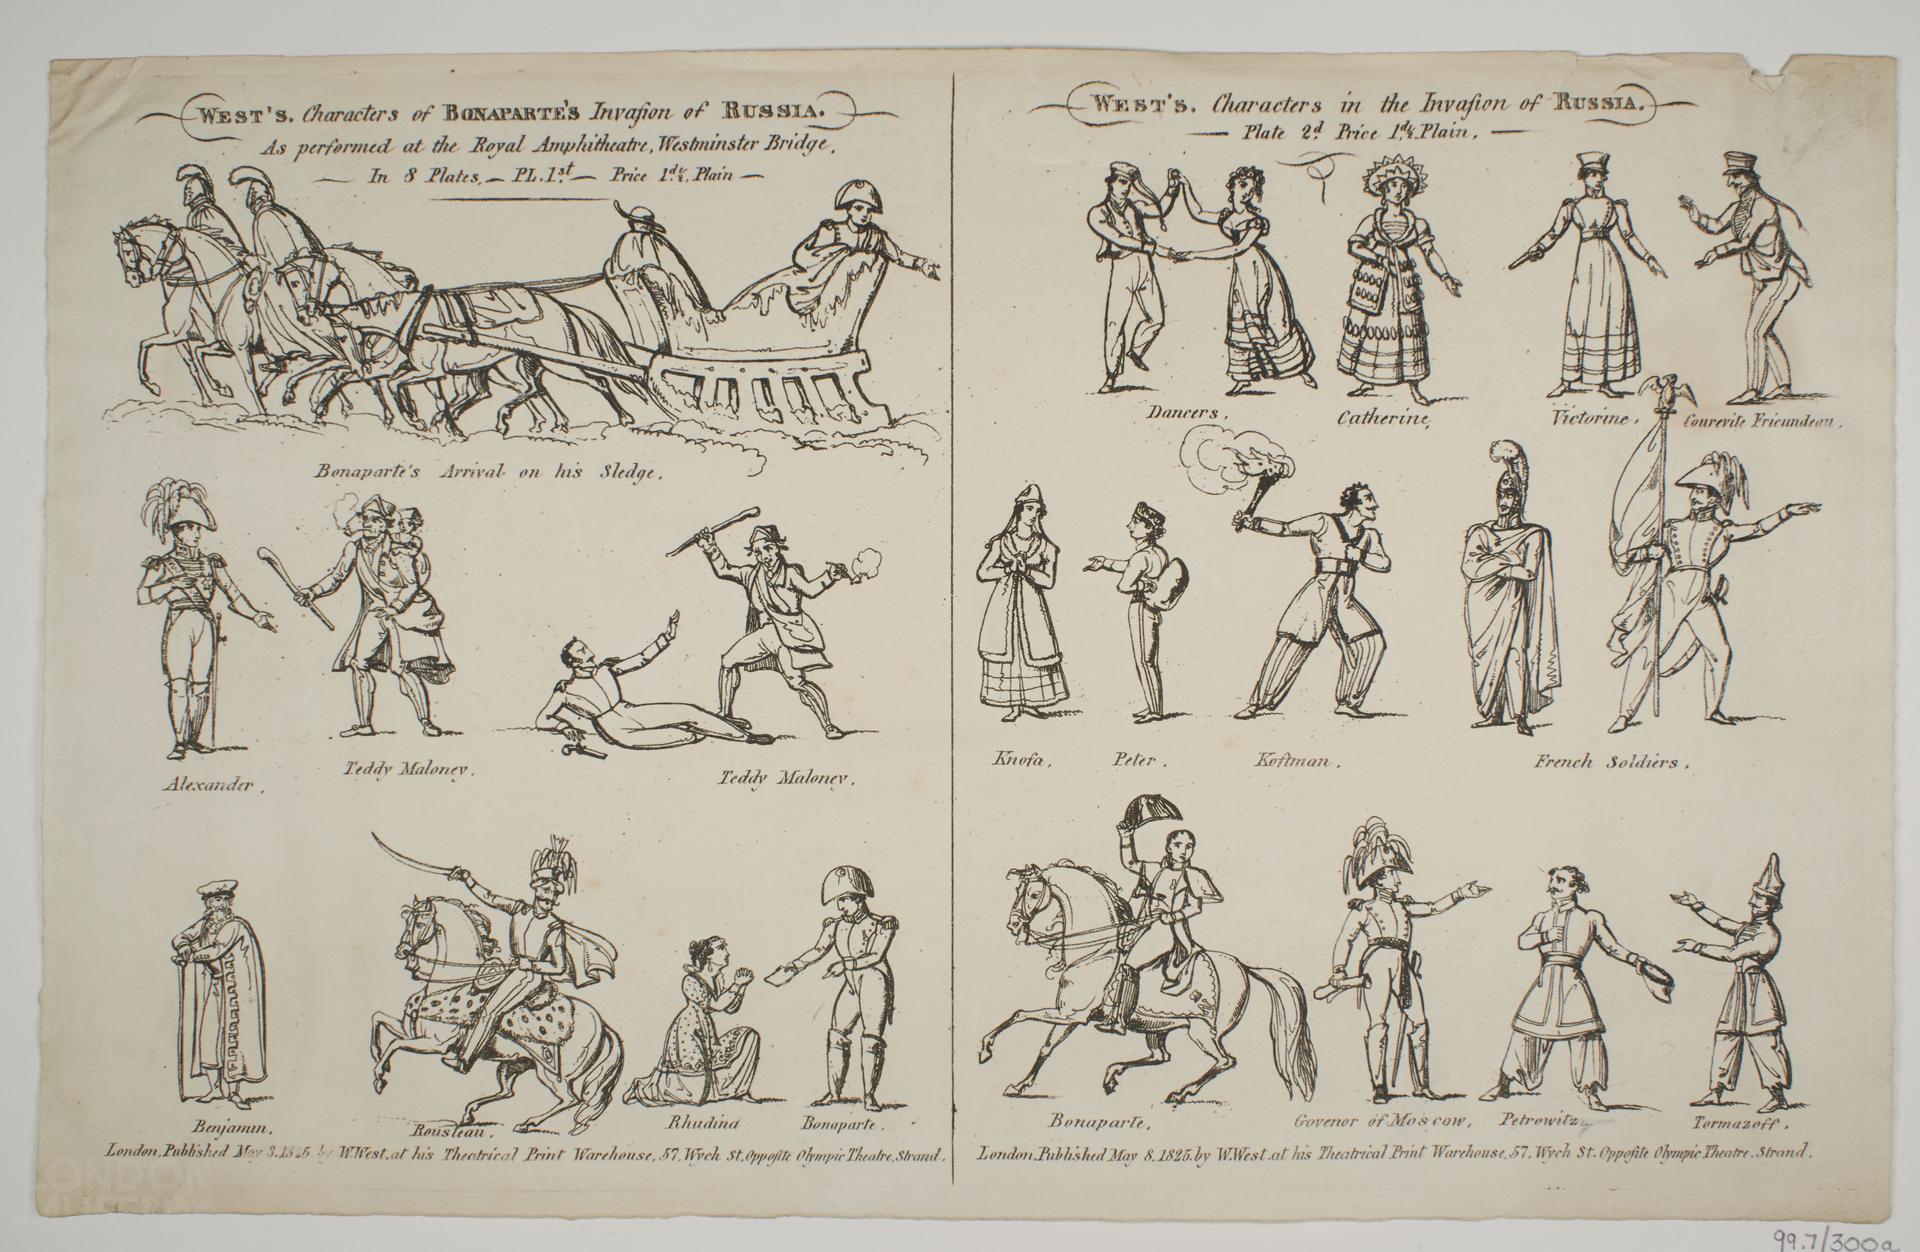 WEST'S. Characters of BONAPARTE'S Invasion of RUSSIA.
As performed at the Royal Amphitheatre, Westminster Bridge.
In 8 Plates, — PL. 1st — Price 1d½, Plain —
Bonaparte's Arrival on his Sledge.
Alexander.
Teddy Maloney.
Teddy Maloney.
Benjamin.
Rousteau.
Rhudina
Bonaparte.
London, Published May 3, 1825 by W. West, at his Theatrical Print Warehouse, 57, Wych St. Opposite Olympic Theatre, Strand.
WEST'S. Characters in the Invasion of RUSSIA.
— Plate 2d Price 1d½ Plain. —
Dancers.
Catherine.
Victorine.
Courevite Fricundeau.
Knofa.
Peter.
Koftman.
French Soldiers.
Bonaparte.
Govenor of Moscow.
Petrowitz.
Tormazoff.
London, Published May 8, 1825, by W. West, at his Theatrical Print Warehouse, 57, Wych St. Opposite Olympic Theatre, Strand.
LONDON
MUSEUM
99.7/300a